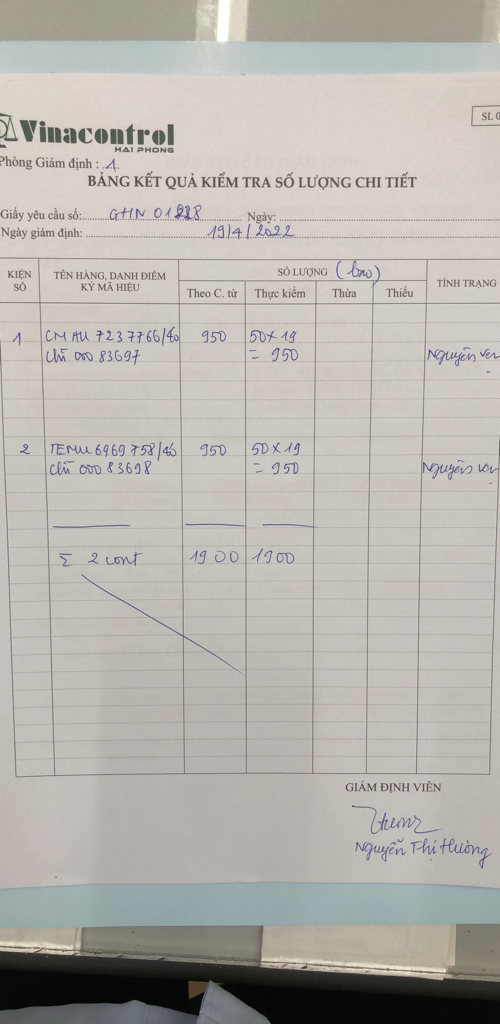 Vinacontrol
HAI PHONG
SL
Phòng Giám định : 1
BẢNG KẾT QUẢ KIỂM TRA SỐ LƯỢNG CHI TIẾT
Giấy yêu cầu số: GHN 01228 Ngày:
Ngày giám định: 19/4/2022
KIỆN SỐ
TÊN HÀNG, DANH ĐIỂM KÝ MÃ HIỆU
SỐ LƯỢNG (bao)
TÌNH TRẠNG
Theo C. từ Thực kiểm Thừa Thiếu
1 CMAU 7237766/40 950 50x19
chì 000 83697 = 950 Nguyên vẹn
2 TEMU 6969758/40 950 50x19
chì 000 83698 = 950 Nguyên vẹn
Σ 2 cont 1900 1900
GIÁM ĐỊNH VIÊN
Nguyễn Thị Hương